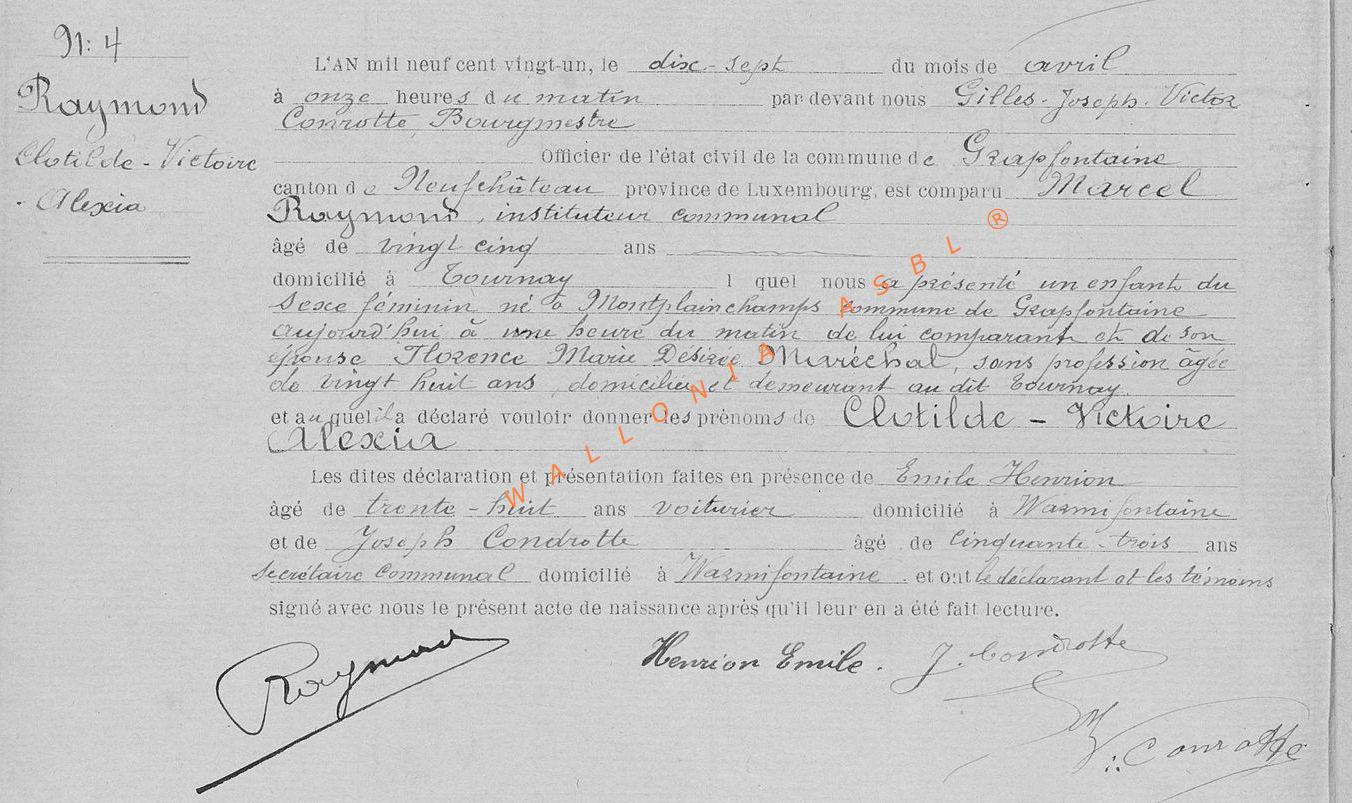 N: 4
Raymond
Clotilde - Victoire
- Alexia
L'AN mil neuf cent vingt-un, le dix-sept du mois de avril
à onze heures du matin par devant nous Gilles-Joseph-Victor
Conrotte, Bourgmestre
Officier de l'état civil de la commune de Grapfontaine
canton de Neufchâteau province de Luxembourg, est comparu Marcel
Raymond, instituteur communal
âgé de vingt cinq ans
domicilié à Tournay l quel nous a présenté un enfant du
sexe féminin né à Montplainchamps commune de Grapfontaine
aujourd'hui à une heure du matin de lui comparant et de son
épouse Florence Marie Désirée Maréchal, sans profession âgée
de vingt huit ans, domiciliée et demeurant au dit Tournay
et auquel il a déclaré vouloir donner les prénoms de Clotilde - Victoire
Alexia
Les dites déclaration et présentation faites en présence de Emile Henrion
âgé de trente-huit ans voiturier domicilié à Warmifontaine
et de Joseph Condrotte âgé de cinquante-trois ans
secrétaire communal domicilié à Warmifontaine. et ont le déclarant et les témoins
signé avec nous le présent acte de naissance après qu'il leur en a été fait lecture.
Raymond
Henrion Emile. J. Condrotte
V. Conrotte
WALLONIA ASBL ®